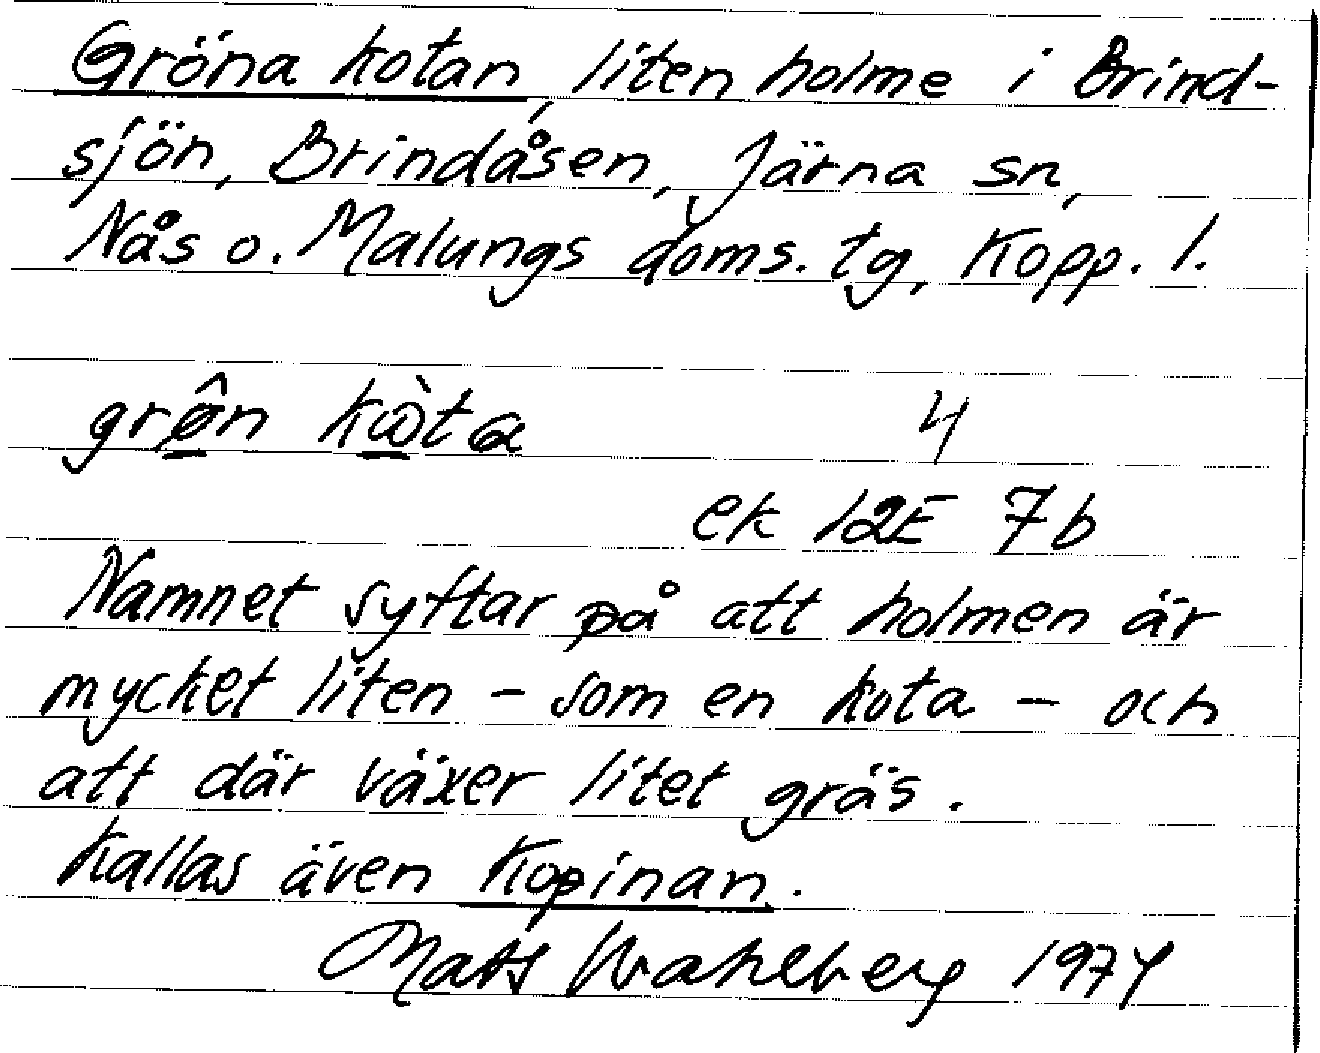 Gröna kotan, liten holme i Brind-
sjön, Brindåsen, Järna sn,
Nås o. Malungs doms. tg, Kopp. l.
grø̂n kòta 4
ek 12E 7b
Namnet syftar på att holmen är
mycket liten – som en kota – och
att där växer litet gräs.
Kallas även Kopinan.
Mats Wahlberg 1974